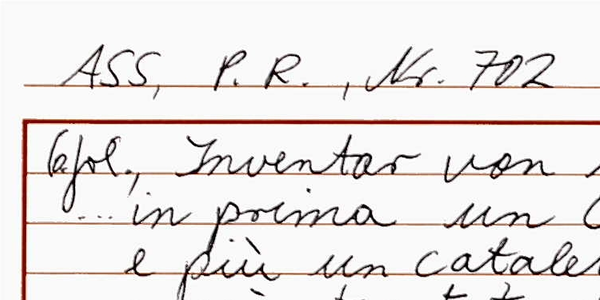 ASS, P. R., Nr. 702
fol., Inventar von
... in prima un
e più un catale